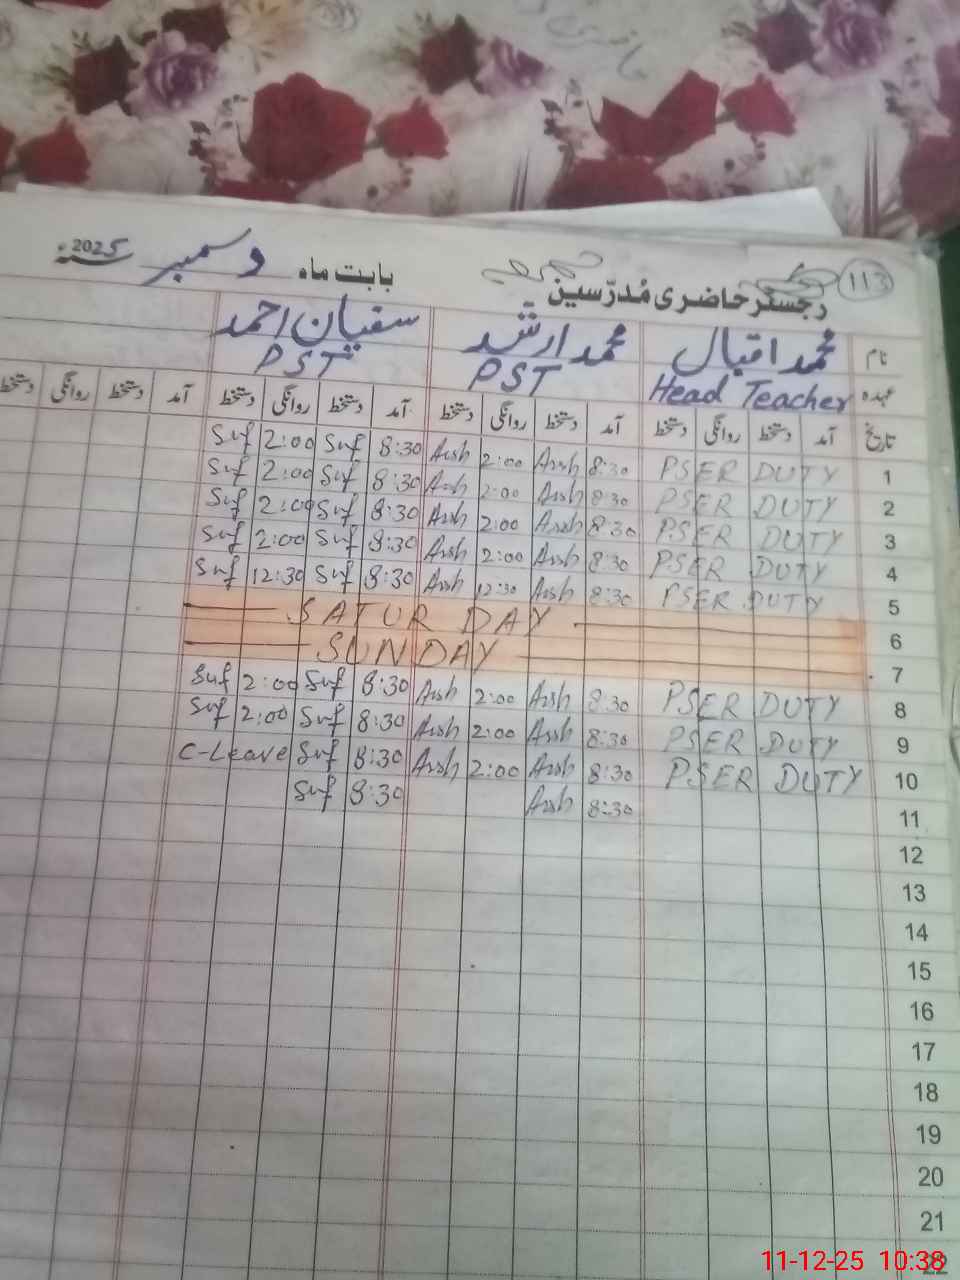 113
رجسٹر حاضری مُدرّسین بابت ماہ دسمبر سنہ 2025ء
نام محمد اقبال محمد ارشد سفیان احمد
عہدہ Head Teacher PST PST
تاریخ آمد دستخط روانگی دستخط آمد دستخط روانگی دستخط آمد دستخط روانگی دستخط آمد دستخط روانگی دستخط
1 PSER DUTY 8:30 Arsh 2:00 Arsh 8:30 Suf 2:00 Suf
2 PSER DUTY 8:30 Arsh 2:00 Arsh 8:30 Suf 2:00 Suf
3 PSER DUTY 8:30 Arsh 2:00 Arsh 8:30 Suf 2:00 Suf
4 PSER DUTY 8:30 Arsh 2:00 Arsh 8:30 Suf 2:00 Suf
5 PSER DUTY 8:30 Arsh 12:30 Arsh 8:30 Suf 12:30 Suf
6 SATUR DAY
7 SUNDAY
8 PSER DUTY 8:30 Arsh 2:00 Arsh 8:30 Suf 2:00 Suf
9 PSER DUTY 8:30 Arsh 2:00 Arsh 8:30 Suf 2:00 Suf
10 PSER DUTY 8:30 Arsh 2:00 Arsh 8:30 Suf C-Leave
11 8:30 Arsh 8:30 Suf
12
13
14
15
16
17
18
19
20
21
22
11-12-25 10:38